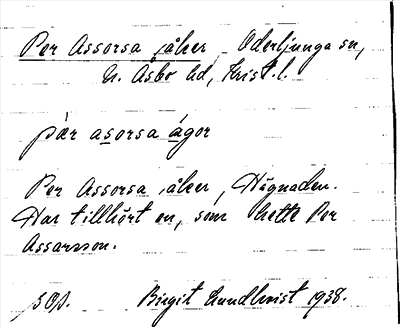 Per Assorsa åker Oderljunga sn,
N. Åsbo hd, Krist. l.
pær asorsa ágor
Per Assorsa åker, Hägnaden.
Har tillhört en, som hette Per
Assarsson.
Birgit Lundkvist 1938.